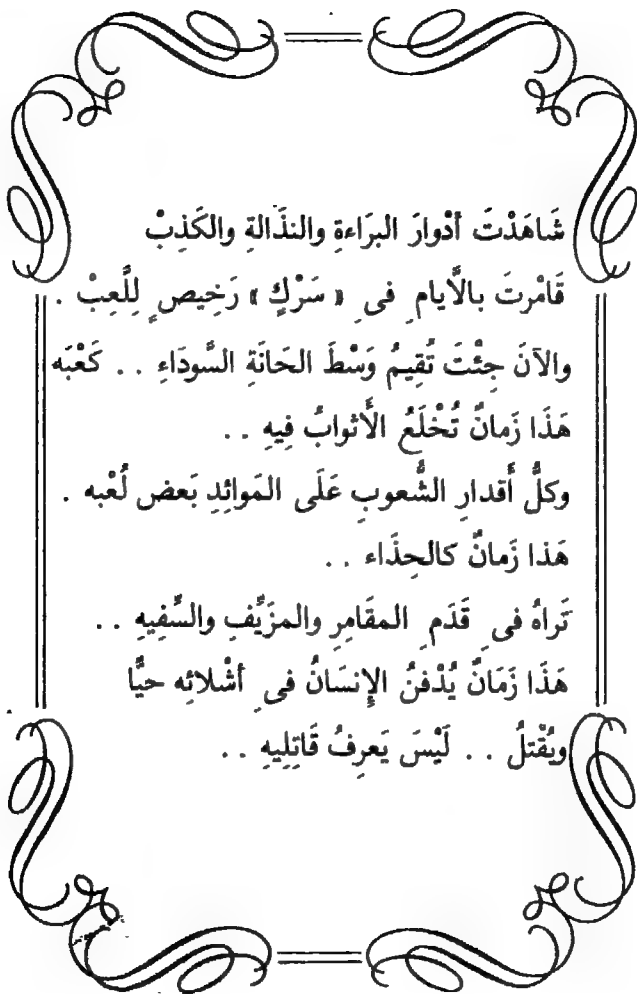 شَاهَدْتَ أدْوارَ البرَاءةِ والنذَالةِ والكَذِبْ
قَامْرتَ بالأيامِ فى « سَرْكٍ » رَخِيصٍ لِلَّعِبْ .
والآنَ جِئْتَ تُقِيمُ وَسْطَ الحَانَةِ السَّودَاءِ . . كَعْبَه
هَذَا زَمانٌ تُخْلَعُ الأَثوابُ فِيهِ . .
وكلُّ أَقدارِ الشُّعوبِ عَلَى المَوائِدِ بَعض لُعْبه .
هَذا زَمانٌ كالحِذَاء . .
تَراهُ فى قَدَمِ المقَامِرِ والمزَيِّفِ والسَّفِيهِ . .
هَذَا زَمَانٌ يُدْفنُ الإِنسَانُ فى أشْلائِه حيًّا
ويُقْتلُ . . لَيْسَ يَعرِفُ قَاتِلِيهِ . .